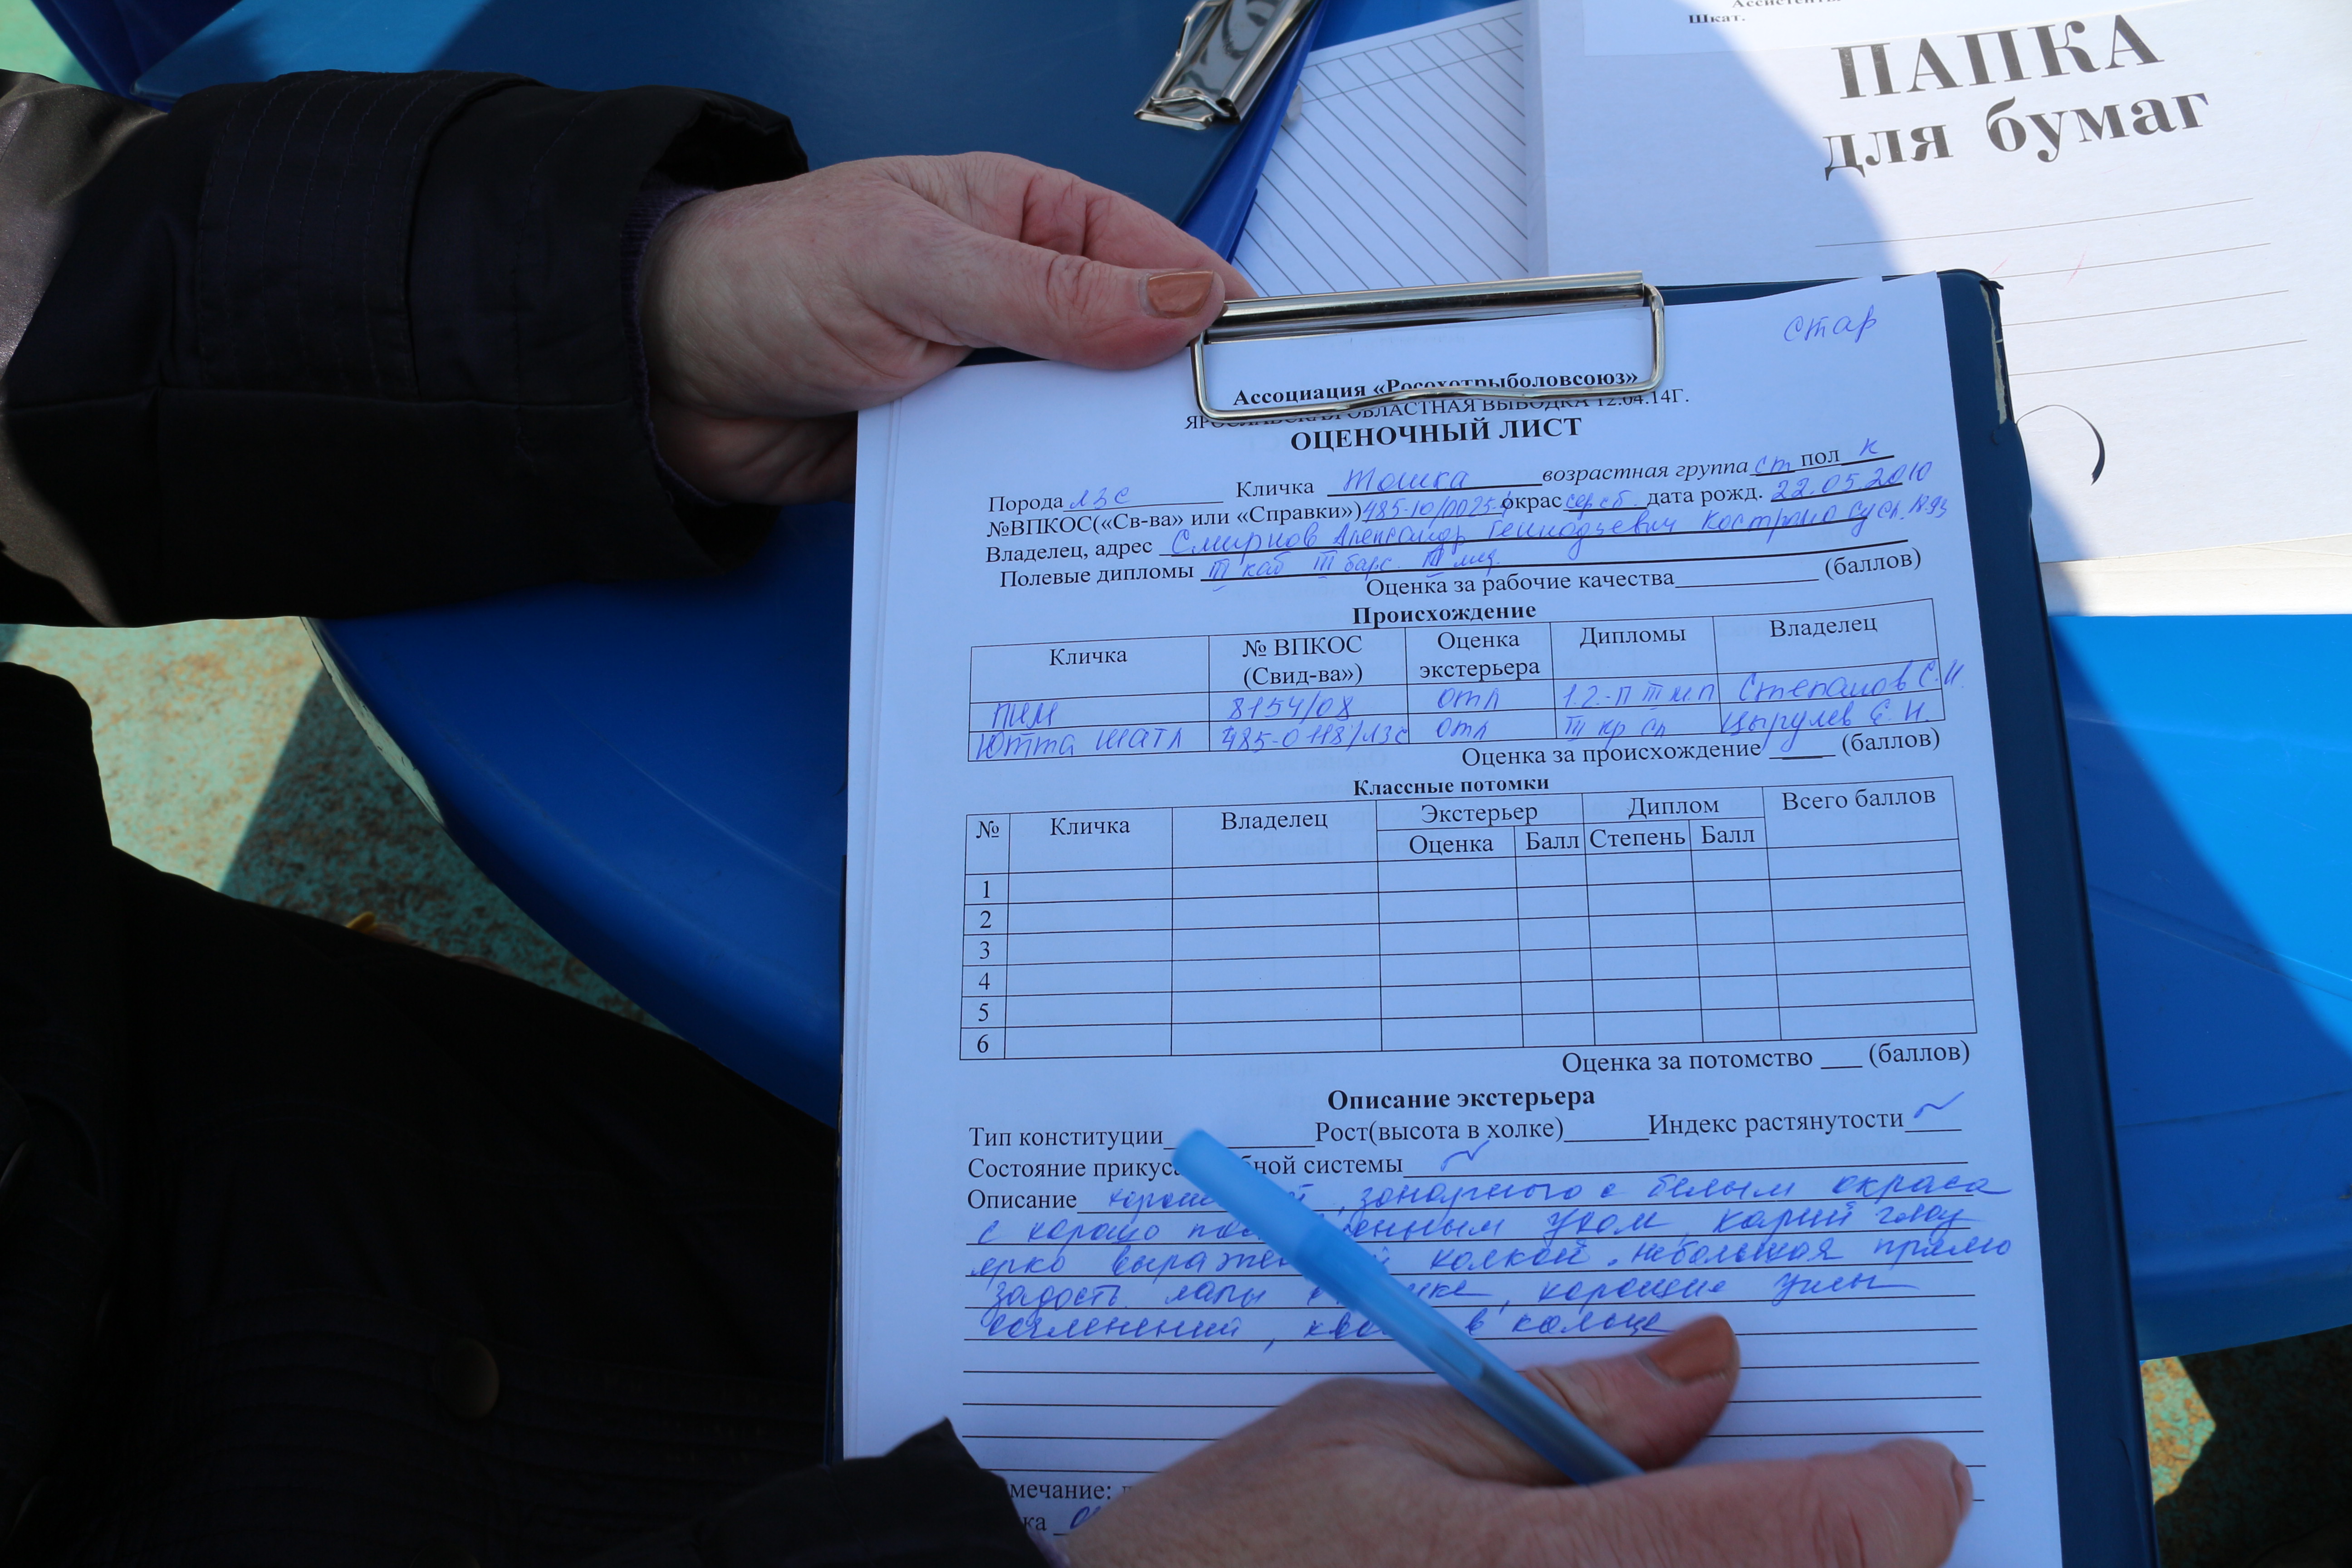 Шкат.
ПАПКА
для бумаг
стар
Ассоциация «Росохотрыболовсоюз»
ЯРОСЛАВСКАЯ ОБЛАСТНАЯ ВЫВОДКА 12.04.14Г.
ОЦЕНОЧНЫЙ ЛИСТ
Порода ЛЗС Кличка Тошка возрастная группа ст пол к
№ВПКОС(«Св-ва» или «Справки») 485-10/0025-4 окрас сер сб. дата рожд. 22.05.2010
Владелец, адрес Смирнов Александр Геннадьевич Кострома
Полевые дипломы III каб III барс. III
Оценка за рабочие качества (баллов)
Происхождение
Кличка № ВПКОС (Свид-ва») Оценка экстерьера Дипломы Владелец
ПИМ 8154/08 отл Степанов С.И.
Ютта ШАТЛ 485-0118/ЛЗС отл III кр сл Цырулев Е.И.
Оценка за происхождение (баллов)
Классные потомки
№ Кличка Владелец Экстерьер Диплом Всего баллов
Оценка Балл Степень Балл
1
2
3
4
5
6
Оценка за потомство (баллов)
Описание экстерьера
Тип конституции Рост(высота в холке) Индекс растянутости
Состояние прикуса бной системы
Описание зонарного с белым окраса
с хорошо енным ухом, карий глаз
ярко выраже й холкой. небольшая прямо
задость. лапы , хорошие углы
сочленений, в кольце
мечание:
ка